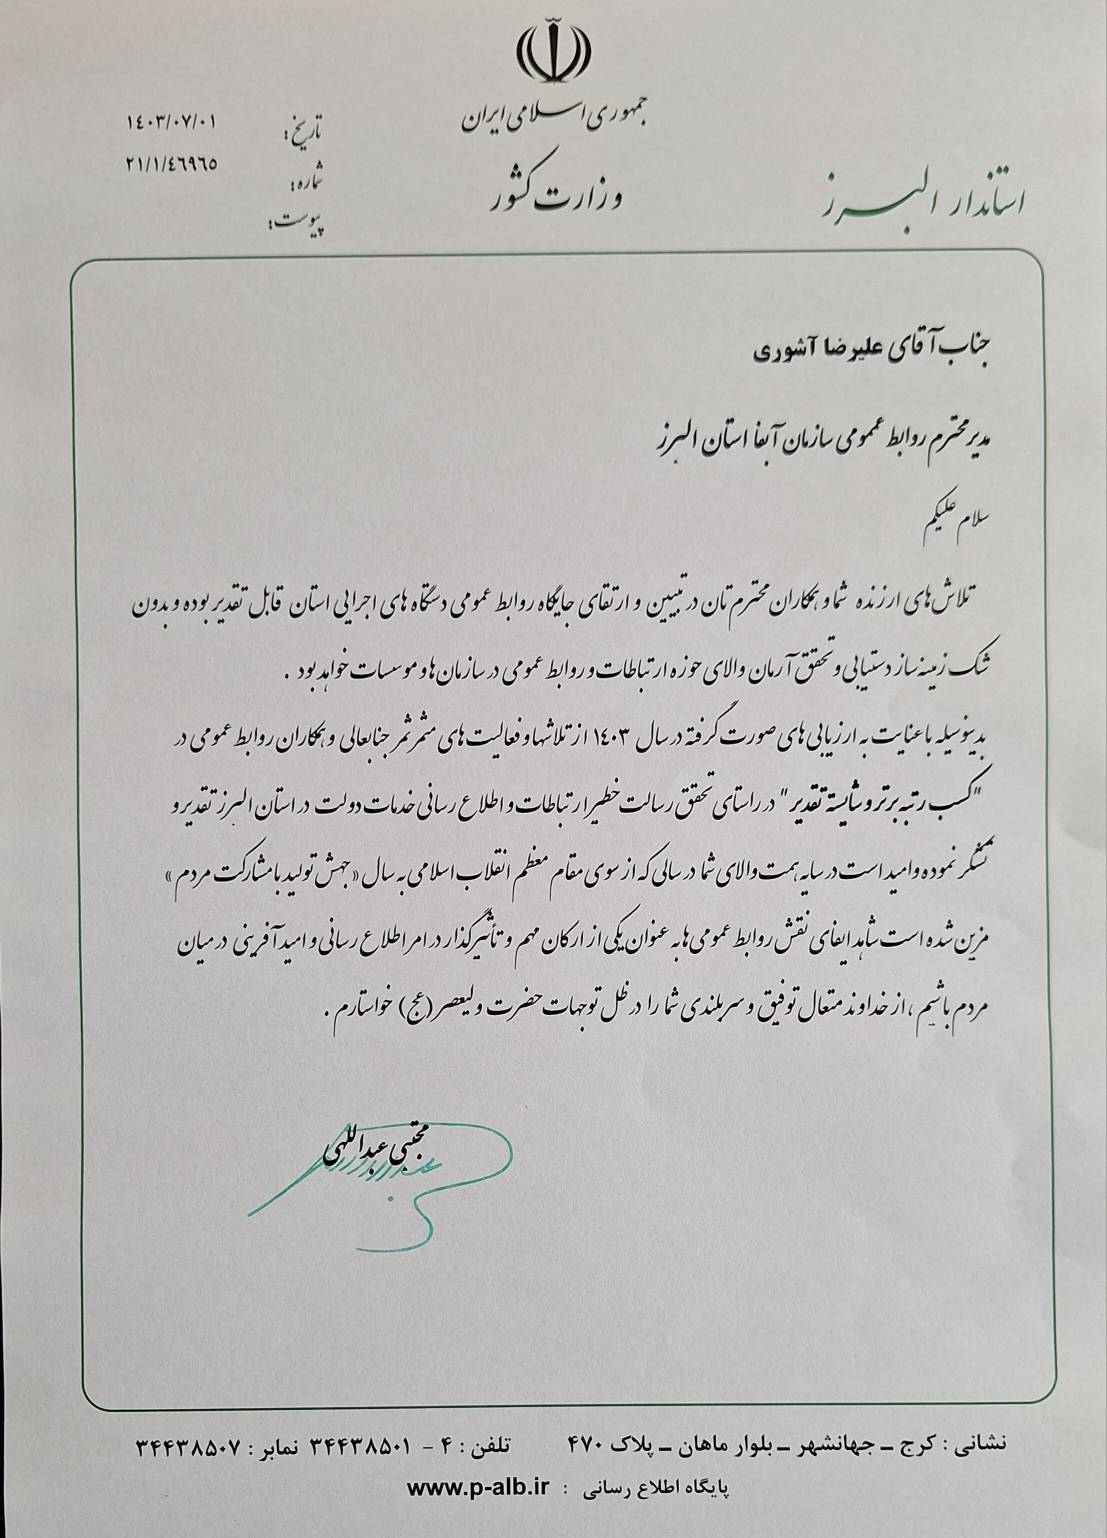 جمهوری اسلامی ایران
وزارت کشور
استاندار البرز
تاریخ: ۱۴۰۳/۰۷/۰۱
شماره: ۲۱/۱/۴۶۹۶۵
پیوست:
جناب آقای علیرضا آشوری
مدیر محترم روابط عمومی سازمان آبفا استان البرز
سلام علیکم
تلاش‌های ارزنده شما و همکاران محترم‌تان در تبیین و ارتقای جایگاه روابط عمومی دستگاه های اجرایی استان قابل تقدیر بوده و بدون
شک زمینه ساز دستیابی و تحقق آرمان والای حوزه ارتباطات و روابط عمومی در سازمان ها و موسسات خواهد بود .
بدینوسیله با عنایت به ارزیابی های صورت گرفته در سال ۱۴۰۳ از تلاشها و فعالیت های مثمرثمر جنابعالی و همکاران روابط عمومی در
"کسب رتبه برتر و شایسته تقدیر" در راستای تحقق رسالت خطیر ارتباطات و اطلاع رسانی خدمات دولت در استان البرز تقدیر و
تشکر نموده و امید است در سایه همت والای شما در سالی که از سوی مقام معظم انقلاب اسلامی به سال «جهش تولید با مشارکت مردم »
مزین شده است شاهد ایفای نقش روابط عمومی ها به عنوان یکی از ارکان مهم و تأثیرگذار در امر اطلاع رسانی و امید آفرینی در میان
مردم باشیم ، از خداوند متعال توفیق و سربلندی شما را در ظل توجهات حضرت ولیعصر (عج) خواستارم .
مجتبی عبداللهی
نشانی : کرج ـ جهانشهر ـ بلوار ماهان ـ پلاک ۴۷۰ تلفن : ۴ - ۳۴۴۳۸۵۰۱ نمابر : ۳۴۴۳۸۵۰۷
پایگاه اطلاع رسانی : www.p-alb.ir